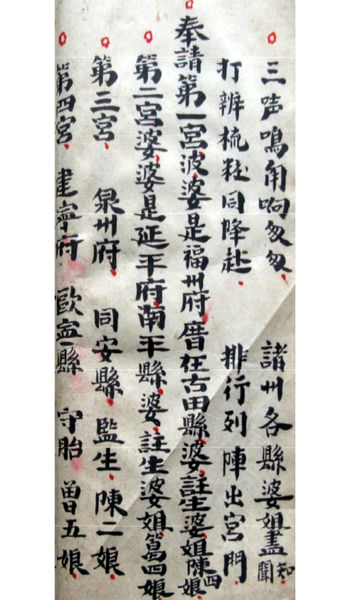 三声鳴角响匆匆 諸州各縣婆姐盡知聞
打辦梳粧同降赴 排行列陣出宮門
奉請第一宮波婆是福州府厝在古田縣婆註生婆姐陳四
第二宮婆婆是延平府南平縣婆註生婆姐葛四娘
第三宮 泉州府 同安縣監生陳二娘
第四宮 建寧府 歐寧縣 守胎 曾五娘